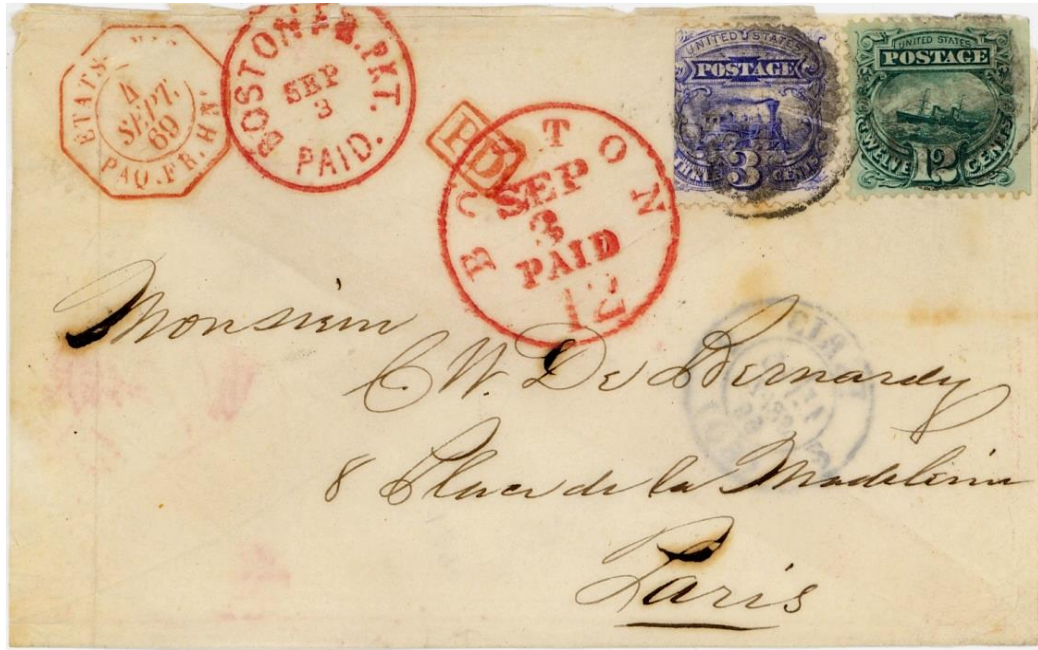 ETATS-
4
SEPT.
69
PAQ. FR. H Nº.
BOSTON FR. PKT.
SEP
3
PAID.
PD
BOSTON
SEP
3
PAID
12
UNITED STATES
POSTAGE
THREE 3 CENTS
UNITED STATES
POSTAGE
TWELVE 12 CENTS
Monsieur
C. W. De Bernardy
8 Place de la Madeleine
Paris